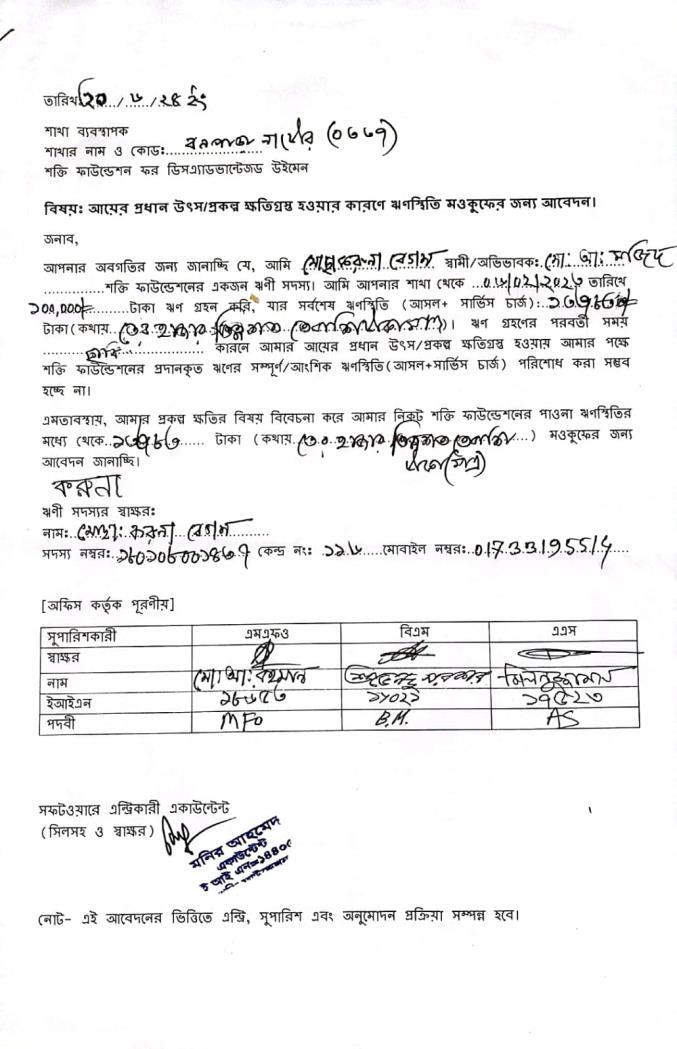 তারিখ: ২০/৬/২৪ ইং
শাখা ব্যবস্থাপক
শাখার নাম ও কোড: নাটোর (০৬৬৭)
শক্তি ফাউন্ডেশন ফর ডিসএ্যাডভান্টেজড উইমেন
বিষয়: আয়ের প্রধান উৎস/প্রকল্প ক্ষতিগ্রস্ত হওয়ার কারণে ঋণস্থিতি মওকুফের জন্য আবেদন।
জনাব,
আপনার অবগতির জন্য জানাচ্ছি যে, আমি মোছাঃ করুনা বেগম স্বামী/অভিভাবক: মো: আ: মজিদ
শক্তি ফাউন্ডেশনের একজন ঋণী সদস্য। আমি আপনার শাখা থেকে তারিখে
১০০,০০০/= টাকা ঋণ গ্রহন করি, যার সর্বশেষ ঋণস্থিতি (আসল+ সার্ভিস চার্জ):
টাকা (কথায় তের হাজার তিনশত )। ঋণ গ্রহণের পরবর্তী সময়
কারনে আমার আয়ের প্রধান উৎস/প্রকল্প ক্ষতিগ্রস্ত হওয়ায় আমার পক্ষে
শক্তি ফাউন্ডেশনের প্রদানকৃত ঋণের সম্পূর্ণ/আংশিক ঋণস্থিতি(আসল+সার্ভিস চার্জ) পরিশোধ করা সম্ভব
হচ্ছে না।
এমতাবস্থায়, আমার প্রকল্প ক্ষতির বিষয় বিবেচনা করে আমার নিকট শক্তি ফাউন্ডেশনের পাওনা ঋণস্থিতির
মধ্যে থেকে টাকা (কথায় তের হাজার তিনশত ) মওকুফের জন্য
আবেদন জানাচ্ছি।
করুনা
ঋণী সদস্যর স্বাক্ষর:
নাম: মোছা: করুনা বেগম
সদস্য নম্বর: কেন্দ্র নং: ১১৬ মোবাইল নম্বর: 01733195514
[অফিস কর্তৃক পূরণীয়]
সুপারিশকারী এমএফও বিএম এএস
স্বাক্ষর
নাম মো: আ: রহমান
ইআইএন
পদবী MFO B.M. AS
সফটওয়ারে এন্ট্রিকারী একাউন্টেন্ট
(সিলসহ ও স্বাক্ষর)
মনির আহমেদ
একাউন্টেন্ট
নোট- এই আবেদনের ভিত্তিতে এন্ট্রি, সুপারিশ এবং অনুমোদন প্রক্রিয়া সম্পন্ন হবে।